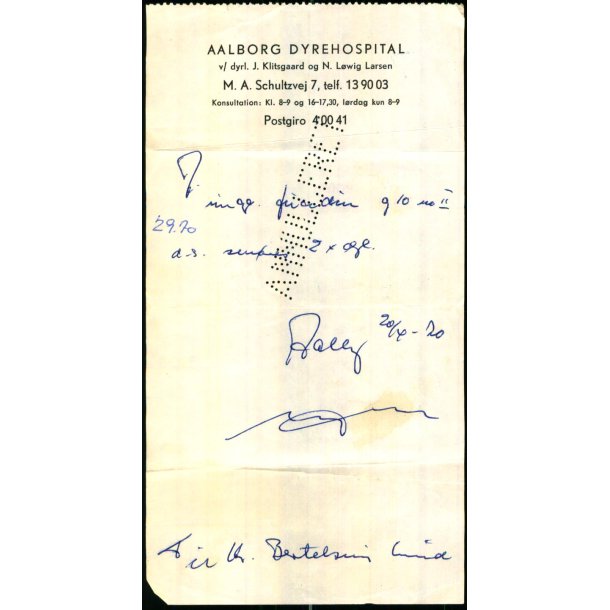 AALBORG DYREHOSPITAL
v/ dyrl. J. Klitsgaard og N. Løwig Larsen
M. A. Schultzvej 7, telf. 13 90 03
Konsultation: Kl. 8–9 og 16–17,30, lørdag kun 8–9
Postgiro 4 00 41
ANNULLERET
g 10 no II
29.70
d.s. 2 x dgl.
20/4-70
Bertelsens hund